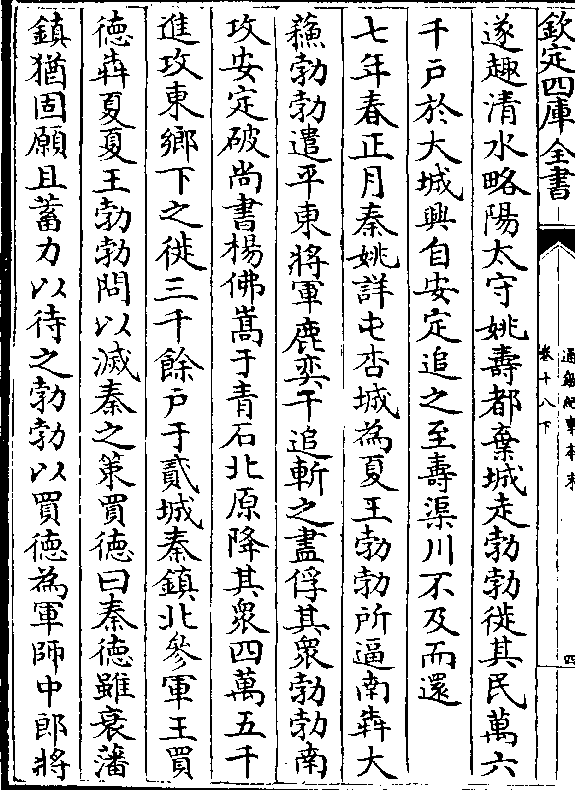 欽定四庫全書
通鑑紀事本末
卷十八下
四
遂趣清水略陽太守姚壽都棄城走勃勃徙其民萬六
千戸於大城興自安定追之至壽渠川不及而還
七年春正月秦姚詳屯杏城為夏王勃勃所逼南犇大
蘓勃勃遣平東將軍鹿奕干追斬之盡俘其衆勃勃南
攻安定破尚書楊佛嵩于青石北原降其衆四萬五千
進攻東鄉下之徙三千餘戸于貳城秦鎮北參軍王買
德犇夏夏王勃勃問以滅秦之策買德曰秦德雖衰藩
鎮猶固願且蓄力以待之勃勃以買德為軍師中郎將